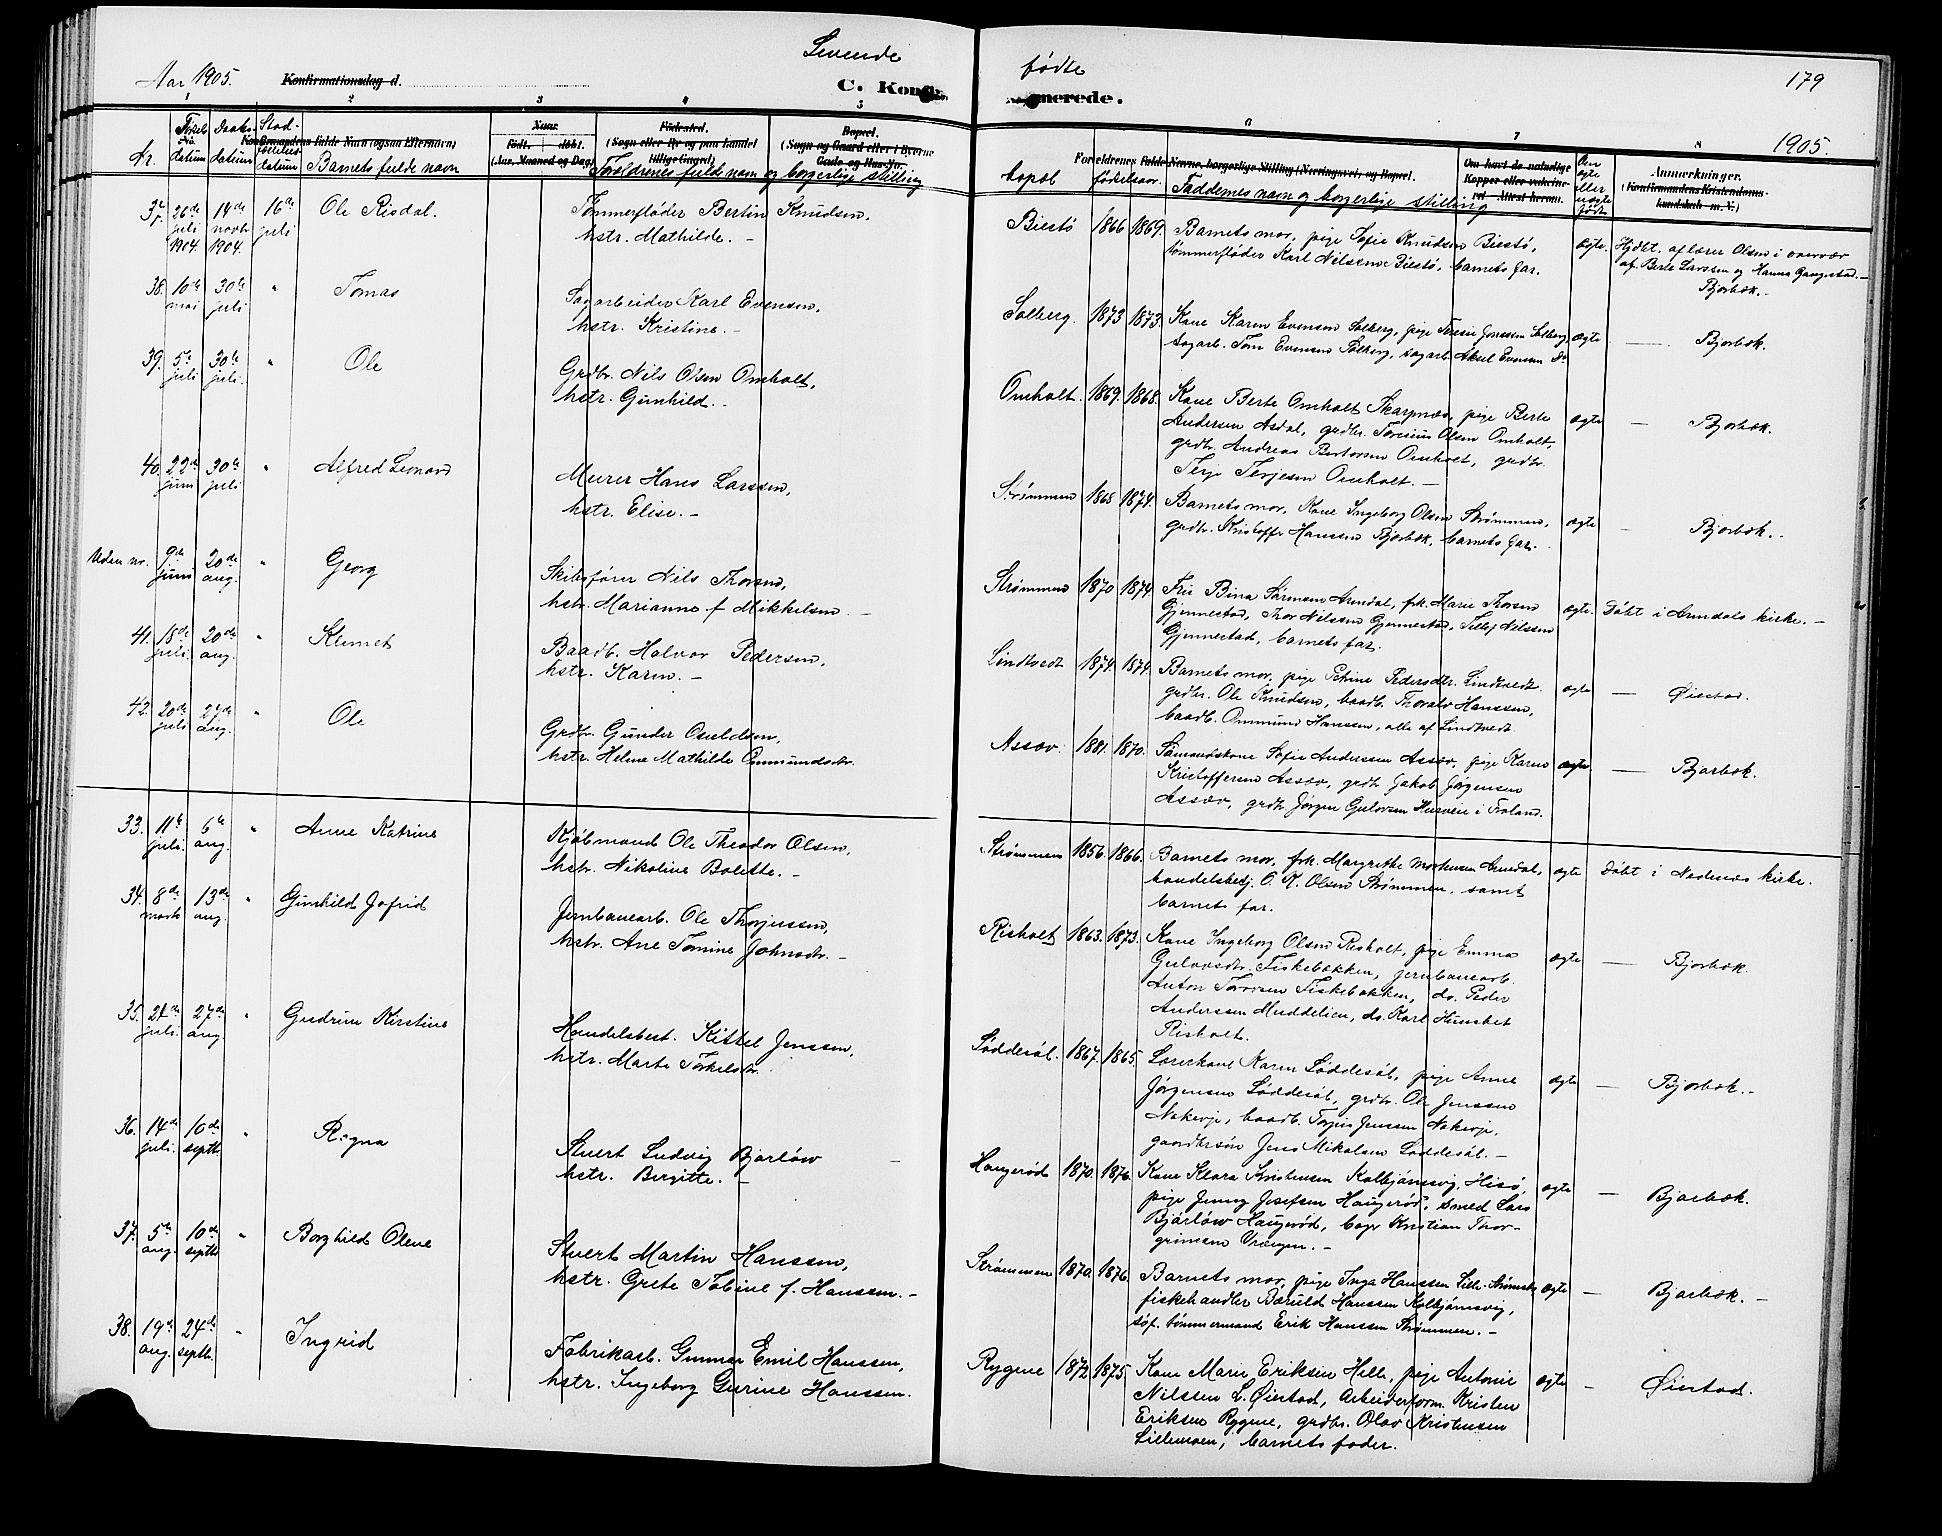 Levende
fødte
179
Aar 1905.
Konfirmationsdag d.
C. Konfir
merede.
1905.
1 2 3 4 5
6 7 8
Nr.
Fødsels datum
Daabs datum
Stad-fæstelses datum
Konfirmandens fulde Navn (ogsaa Efternavn)
Barnets fulde navn
Naar
født. døbt.
(Aar, Maaned og Dag)
Fødested.
(Sogn eller By og paa Landet tillige Gaard)
Bopæl.
(Sogn og Gaard eller i Byerne Gade og Hus-Nr.
Forældrenes fulde navn og borgerlige stilling
bopæl
Forældrenes fulde Navne, borgerlige Stilling (Næringsvei) og Bopæl.
fødselsaar.
Faddernes navn og borgerlige stilling
Om havt de naturlige Kopper eller vaccine-ret. Attest herom.
Om ægte eller uægte født
Anmerkninger.
(Konfirmandens Kristendoms-kundskab m. V.)
37. 26de juli 1904 14de novbr 1904. 16de juli Ole Risdal.
Tømmerfløder Bertin Knudsen,
hstr. Mathilde. –
Biestø 1866 1869. Barnets mor, pige Sofie Knudsen Biestø,
tømmerfløder Karl Nilsen Biestø, barnets far.
ægte. Hjdbt. af lærer Olsen i overvær
af Berte Larssen og Hanna Gaugstad. –
Bjorbæk. –
38. 10de mai 30te juli " Tomas
Sagarbeider Karl Evensen,
hstr. Kristine. –
Solberg. 1873 1873. Kone Karen Evensen Solberg, pige Terese Jenssen Solberg,
sagarb. Tom Evensen Solberg, sagarb. Aksel Evensen do
ægte – Bjorbæk.
39. 5te juli 30te juli. " Ole
Grdbr. Nils Olsen Omholt,
hstr. Gunhild. –
Omholt. 1869. 1868. Kone Berte Omholt Skarpnæs, pige Berte
Andersen Asdal, grdbr. Torinius Olsen Omholt,
grdbr. Andreas Bertorsen Omholt, grdbr.
Terje Terjesen Omholt. –
ægte – Bjorbæk.
40. 22de juni 30te juli " Alfred Leonard
Murer Hans Larssen,
hstr. Elise. –
Strømmen 1868 1874. Barnets mor, Kone Ingeborg Olsen Strømmen,
grdbr. Kristoffer Hanssen Bjorbæk, barnets far.
ægte – Bjorbæk. –
Uden nr. 9de juni 20de aug. " Georg
Skibsfører Nils Thorsen,
hstr. Marianne f. Mikkelsen. –
Strømmen 1870 1874. Fru Bina Sørensen Arendal, frk. Marie Thorsen
Gjennestad, Thor Nilssen Gjennestad, Tellef Nilssen
Gjennestad, barnets far.
ægte. Døbt i Arendals kirke. –
41. 18de juli. 20de aug. " Klemet
Baadb. Halvor Pedersen,
hstr. Karen. –
Lindtvedt 1874. 1874. Barnets mor, pige Petrine Pedersdtr. Lindtvedt.
grdbr. Ole Knudsen, baadb. Thorald Hanssen,
baadb. Ommund Hanssen, alle af Lindtvedt.
ægte – Øiestad.
42. 20de juli 27de aug. " Ole
Grdbr. Gunder Osuldsen,
hstr. Helene Mathilde Ommundsdtr.
Assæv. 1881. 1870. Sømandskone Sofie Anderssen Assæv, pige Karen
Kristoffersen Assæv, grdb. Jakob Jørgensen
Assæv, grdb. Jørgen Gulovsen Husvei i Froland.
ægte. – Bjorbæk.
33. 11te juli. 6te aug. " Anne Katrine
Kjøbmand Ole Theodor Olsen,
hstr. Nikoline Bolette. –
Strømmen 1856. 1866. Barnets mor, frk. Margrethe Mortensen Arendal,
handelsbetj. O. N. Olsen Strømmen, samt
barnets far.
ægte Døbt i Nedenæs kirke.
34. 8de marts 13de aug. " Gunhild Jofrid
Jernbanearb. Ole Thorjussen,
hstr. Ane Tomine Johnsdtr. –
Risholt 1863. 1873. Kone Ingeborg Olsen Risholt, pige Emma
Gulovsdtr. Fiskebækken, jernbanearb.
Anton Torsen Fiskebækken, do. Peder
Anderssen Muddelien, do. Karl
Risholt.
ægte – Bjorbæk.
35. 21de juli. 27de aug. " Gudrun Kirstine
Handelsbest. Kittel Jenssen,
hstr. Marte Torkelsdtr.
Løddesøl. 1867. 1865. Lærerkone Karen Løddesøl, pige Anne
Jørgensen Løddesøl, grdbr. Ole Jenssen
Nakerje, baadb. Torjus Jenssen Nakerje,
gaardbrsøn Jens Mikalsen Løddesøl. –
ægte – Bjorbæk. –
36. 14de juli. 10de septb. " Ragna
Stuert Ludvig Bjorløw –
hstr. Bergitte. –
Haugerød 1870. 1876. Kone Klara Kristensen Kolbjørnsvig, Hisø,
pige Jenny Josefsen Haugerød, smed Lars
Bjorløw Haugerød, bager Kristian Thor-
grimsen Vrængen. –
ægte – Bjorbæk.
37. 5te aug. 10de septb. " Borghild Olene
Stuert Martin Hanssen,
hstr. Grete Tobine f. Hanssen. –
Strømmen 1870. 1876. Barnets mor, pige Inga Hanssen Lille-Strømmen
fiskehandler Bæruld Hanssen Kolbjørnsvig,
søf. tømmermand Erik Hanssen Strømmen. –
ægte – Bjorbæk. –
38. 19de aug. 24de septb. " Ingrid
Fabrikarb. Gunnar Emil Hanssen,
hstr. Ingeborg Gurine Hanssen.
Rygene 1872 1875. Kone Marie Eriksen Helle, pige Antonie
Nilssen L. Øiestad, Arbeiderform. Kristen
Eriksen Rygene, grdbr. Olav Kristensen
Lillemoen, barnets fader.
ægte – Øiestad.